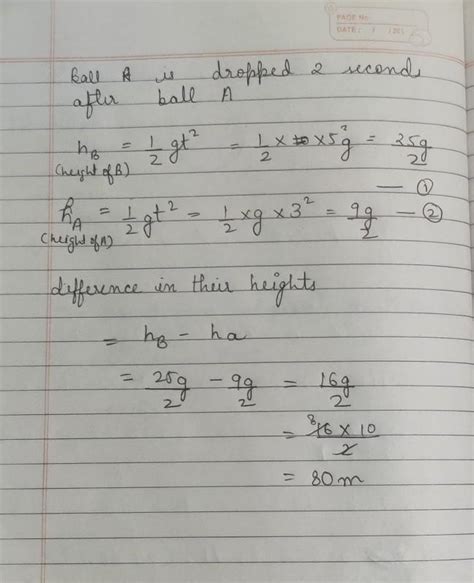 PAGE No.
DATE: / /201
Ball A is dropped 2 seconds
after ball A
hB = 1/2 gt² = 1/2 × × 5²g = 25g/2 — ①
(height of B)
hA = 1/2 gt² = 1/2 × g × 3² = 9g/2 — ②
(height of A)
difference in their heights
= hB - ha
= 25g/2 - 9g/2 = 16g/2
= 8 16 × 10/2
= 80m